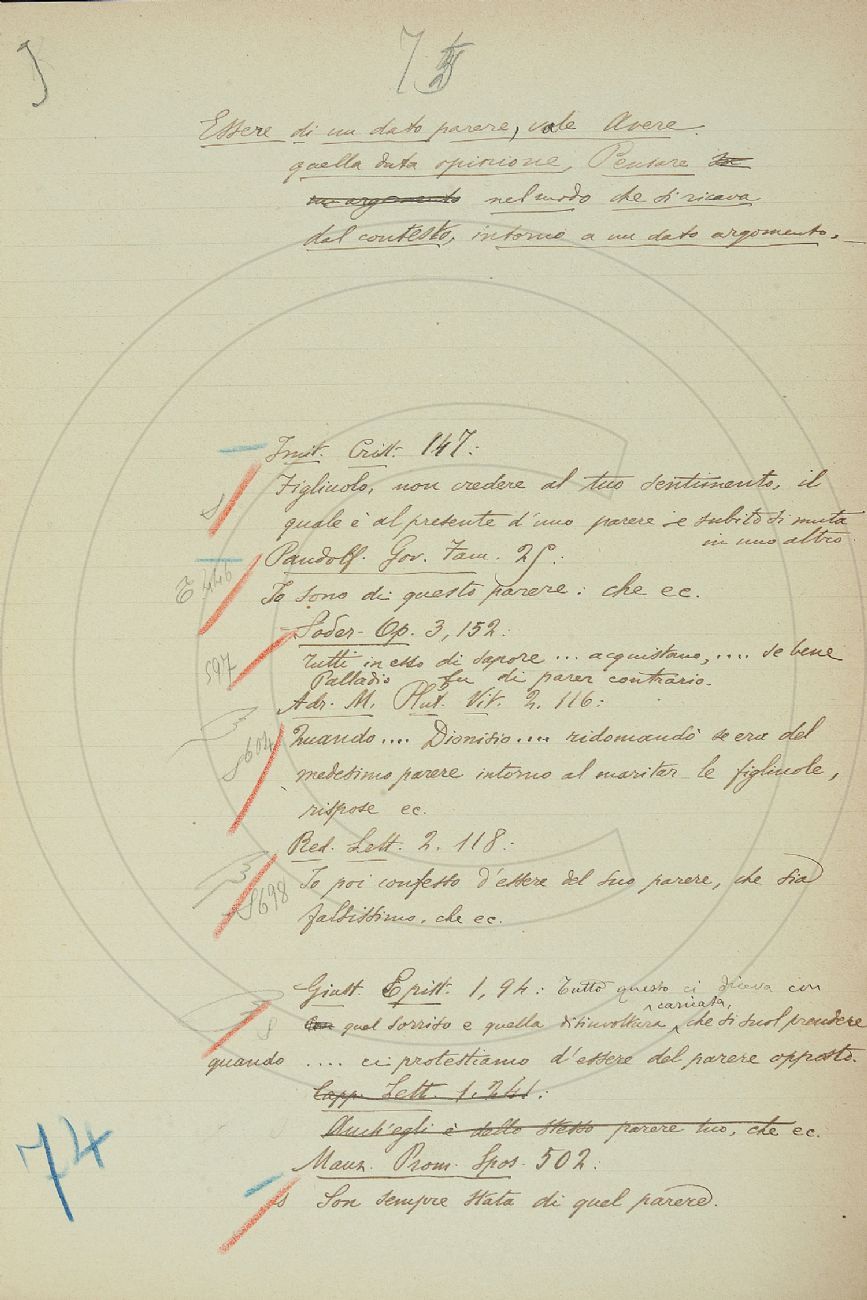 7
Essere di un dato parere, vale Avere
quella data opinione, Pensare su
un argomento nel modo che si ricava
dal contesto, intorno a un dato argomento. —
Imit. Crist. 147:
S
Figliuolo, non credere al tuo sentimento, il
quale è al presente d'uno parere e subito si muta
in uno altro.
Pandolf. Gov. Fam. 25:
T 446
Io sono di questo parere: che ec.
Soder. Op. 3, 152:
S97
Tutti in esso di sapore ... acquistano, .... se bene
Palladio fu di parer contrario.
Adr. M. Plut. Vit. 2. 116:
S604
Quando .... Dionisio .... ridomandò se era del
medesimo parere intorno al maritar le figliuole,
rispose ec.
Red. Lett. 2. 118:
S698
Io poi confesso d'essere del suo parere, che sia
falsissimo, che ec.
Giust. Epist. 1, 94: Tutto questo ci diceva con
caricata,
quel sorriso e quella disinvoltura che si suol prendere
S
quando .... ci protestiamo d'essere del parere opposto.
Capp. Lett. 1. 241:
Anch'egli è dello stesso parere tuo, che ec.
74
Manz. Prom. Spos. 502:
S Son sempre stata di quel parere.